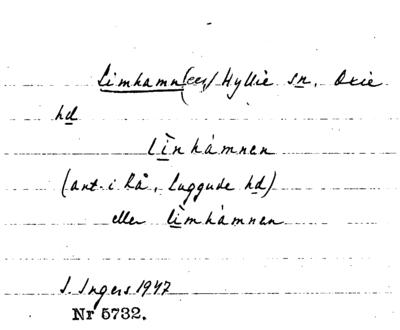 Limhamn(en) Hyllie sn. Oxie
hd
lìnhámnen
(ant. i Rå, Luggude hd)
eller lìmhámnen
I. Ingers 1947
Nr 5732.